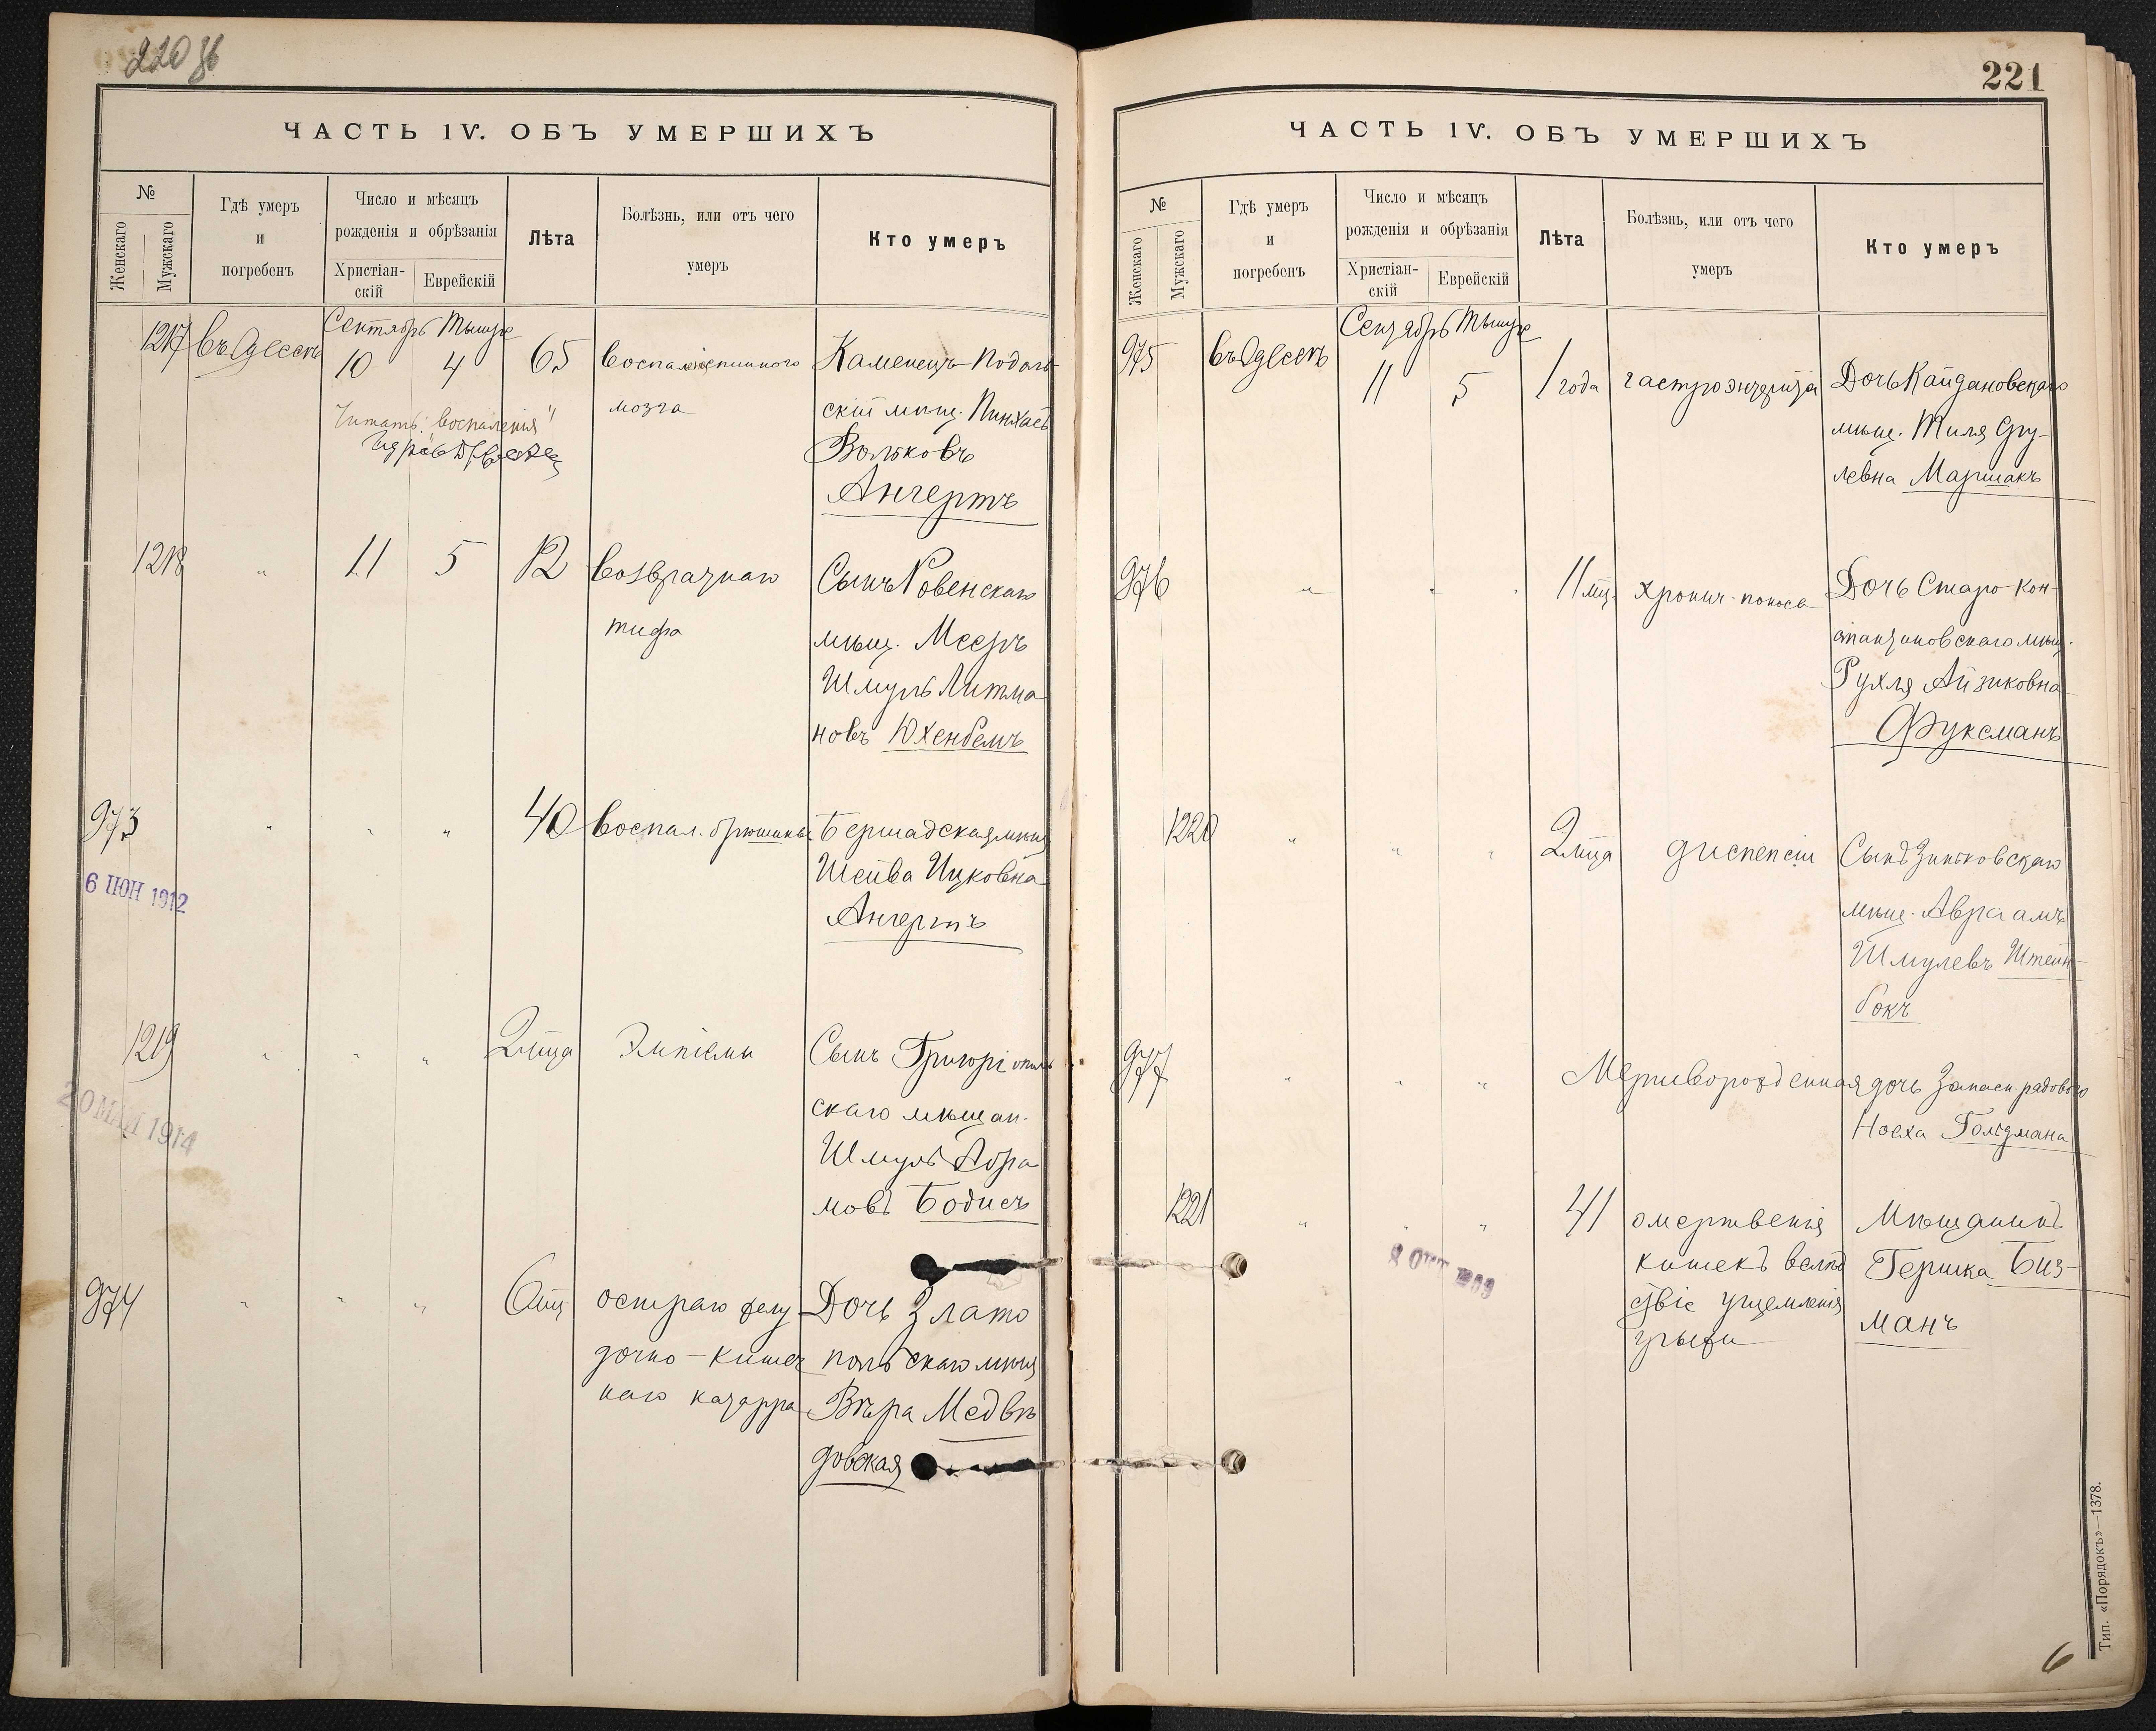 220 об
ЧАСТЬ IV. ОБЪ УМЕРШИХЪ
№
Женскаго
Мужскаго
Гдѣ умеръ
и
погребенъ
Число и мѣсяцъ
рожденія и обрѣзанія
Христіан-
скій
Еврейскій
Лѣта
Болѣзнь, или отъ чего
умеръ
Кто умеръ
1217 въ Одессѣ
Сентябрь Тишре
10 4
65
воспаленіе спинного
мозга
Читать: "воспаленія"
Каменецъ-Подоль-
скій мѣщ. Пинхасъ
Вольковъ
Ангертъ
1218 " 11 5 12
возвратнаго
тифа
Сынъ Ровенскаго
мѣщ. Мееръ
Шмуль Литма
новъ Юхенбемъ
973 " " " 40
воспал. брюшины
Бершадская мѣщ
Шейва Ицковна
Ангертъ
6 ІЮН 1912
1219 " " " 2 мца
Эмпіемы
Сынъ Григоріополь
скаго мѣщан.
Шмуль Абра
мовъ Бодисъ
20 МАЯ 1914
974 " " " 6 мц
остраго желу
дочно-кишеч
наго катарра
Дочь Злато
польскаго мѣщ
Вѣра Медвѣ
довская
221
ЧАСТЬ IV. ОБЪ УМЕРШИХЪ
№
Женскаго
Мужскаго
Гдѣ умеръ
и
погребенъ
Число и мѣсяцъ
рожденія и обрѣзанія
Христіан-
скій
Еврейскій
Лѣта
Болѣзнь, или отъ чего
умеръ
Кто умеръ
975 въ Одессѣ
Сентябрь Тишре
11 5
1 года
гастроэнтерита
Дочь Кайдановскаго
мѣщ. Тиля Сру-
левна Маршакъ
976 " " " 11 мц.
хронич. поноса
Дочь Старо-Кон-
стантиновскаго мѣщ.
Рухля Айзиковна
Фуксманъ
1220 " " " 2 мца
диспепсіи
Сынъ Зиньковскаго
мѣщ. Авраамъ
Шмулевъ Штейн-
бокъ
977 " " "
Мертворожденная дочь Запасн. рядового
Ноеха Гольдмана
1221 " " " 41
омертвенія
кишекъ вслѣд
ствіе ущемленія
грыжи
Мѣщанинъ
Гершка Биз-
манъ
8 ОКТ 1909
Тип. «Порядокъ»—1378.
6